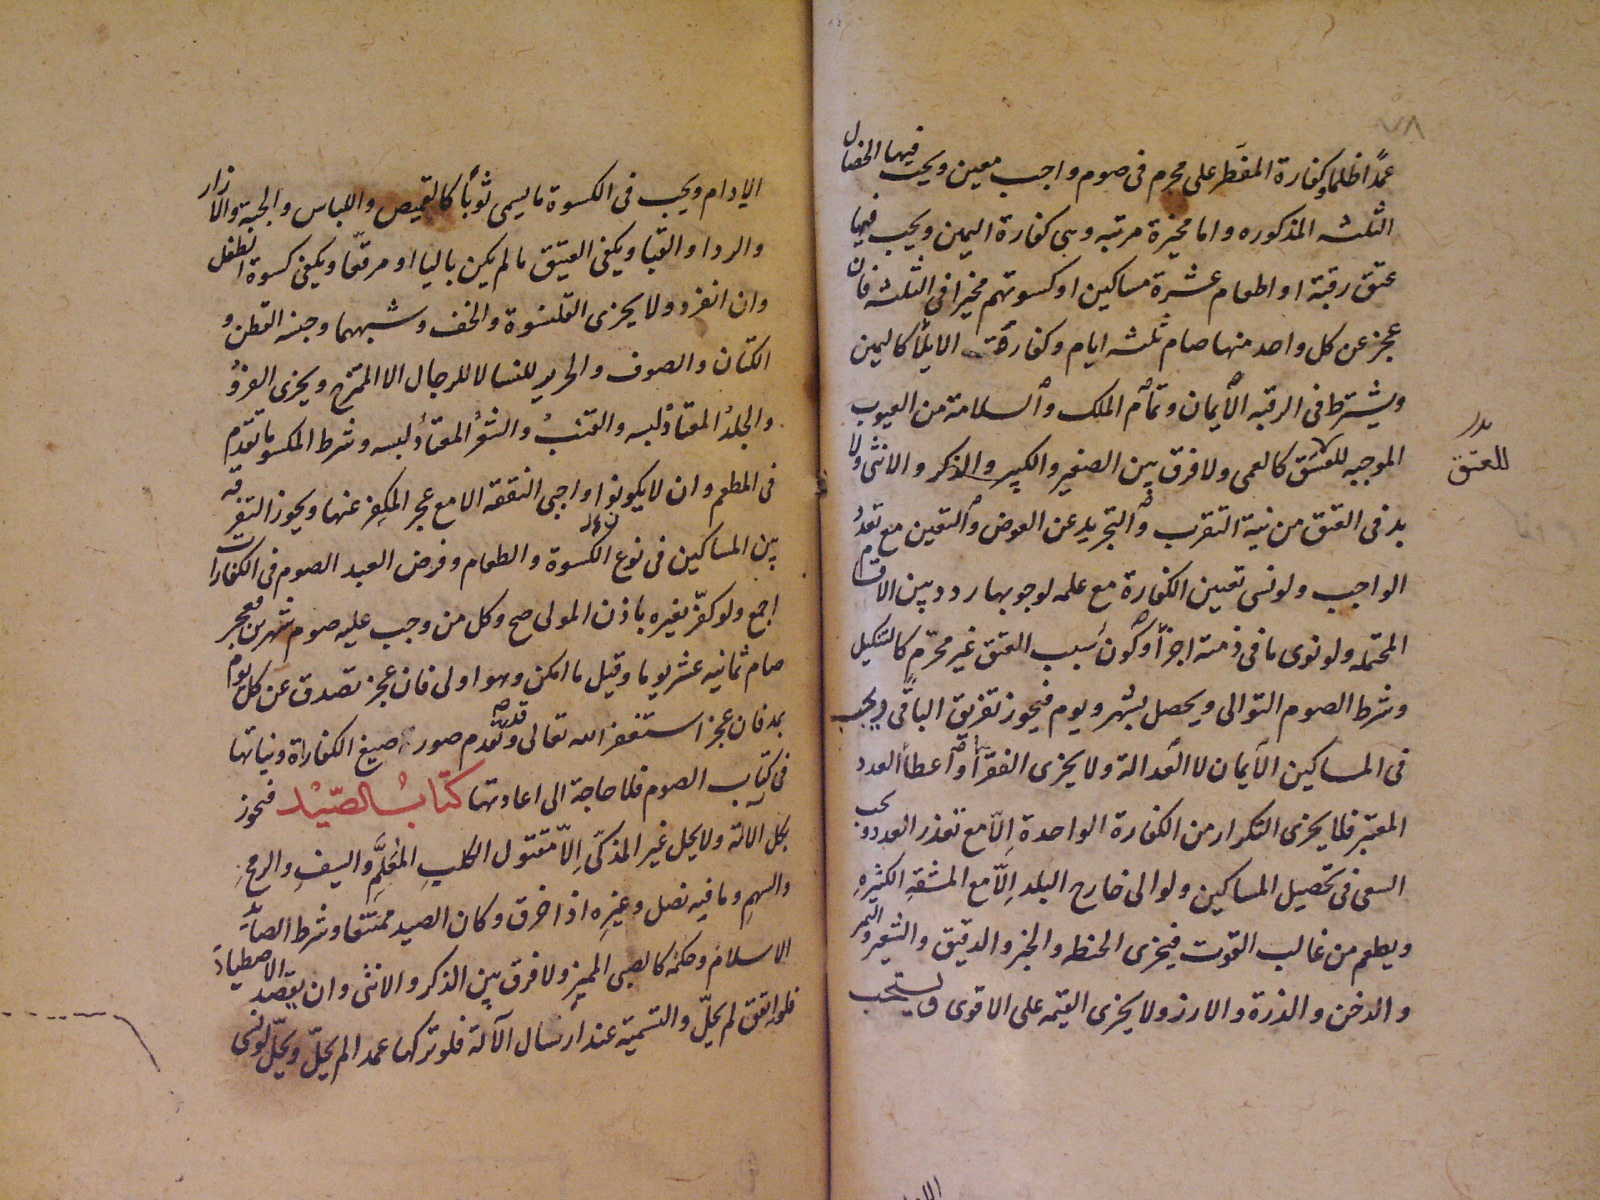 ٧٨
عمدًا ظلما وكفارة المفطر على محرم فى صوم واجب معين ويجب فيها الخصال
الثلثه المذكوره واما مخيرة مرتبه وهى كفارة اليمين ويجب فيها
عتق رقبة او اطعام عشرة مساكين او كسوتهم مخيرا فى الثلثه فان
عجز عن كل واحد منها صام ثلثه ايام وكفارة الايلأ كاليمين
ويشترط فى الرقبه الأيمان وتمام الملك والسلامة من العيوب
الموجبه للعتق كالعمى ولا فرق بين الصغير والكبير والذكر والانثى ولا
بد فى العتق من نية التقرب والتجريد عن العوض والتعين مع تعدد
الواجب ولو نسى تعيين الكفارة مع علمه لوجوبها ردد بين الاقسام
المحتمله ولو نوى ما فى ذمته اجزأ وكون سبب العتق غير محرّم كالتنكيل
وشرط الصوم التوالى ويحصل بشهر ويوم فيجوز تفريق الباقى ويجب
فى المساكين الأيمان لا العدالة ولا يجزى الفقرأ واعطأ العدد
المعتبر فلا يجزى التكرار من الكفارة الواحدة إلّا مع تعذر العدد ويجب
السعى فى تحصيل المساكين ولو الى خارج البلد إلّا مع المشقة الكثيرهِ
ويطعم من غالب القوت فيجزى الحنطه والخبز والدقيق والشعير والتمر
والدخن والذرة والارز ولا يجزى القيمه على الاقوى ويستحب
بدل
للعتق
الادام ويجب فى الكسوة ما يسمى ثوبًا كالقميص واللباس والجبة والازار
والردا والقبا ويكفى العتيق ما لم يكن باليا او مرقعا ويكفى كسوة الطفل
وان انفرد ولا يجزى القلنسوة والخف وشبههما وجنسه القطن و
الكتان والصوف والحرير للنسا لا للرجال الا الممتزج ويجزى الفروُ
والجلدُ المعتاد لبسه والقنب والشعرُ المعتاد لبسه وشرط المكسو ما تقدم
فى المطعم وان لا يكونوا واجبى النفقه الا مع عجز المكفر عنها ويجوز التفرقه
بين المساكين فى نوع الكسوة والطعام وفرض العبد الصوم فى الكفارات
اجمع ولو كفّر بغيره باذن المولى صح وكل من وجب عليه صوم شهرين فعجز
صام ثمانيه عشر يوما وقيل ما امكن وهو اولى فان عجز تصدق عن كل يوم
بمد فان عجز استغفر الله تعالى وقد تقدم صور صيغ الكفاراة ونياتها
فى كتاب الصوم فلا حاجة الى اعادتها كتابُ الصّيْد فيحوز
بكل الآلة ولا يحل غير المذكّى إلّا مقتول الكلبِ المعلَّمِ والسيفِ والرمحِ
والسهمِ وما فيه نصل وغيرِه اذا خرق وكان الصيد ممتنعا وشرط الصائد
الاسلام وحكمه كالصبى المميز ولا فرق بين الذكر والانثى وان يقصد الاصطياد
فلو اتفق لم يحلّ والتسمية عند ارسال الآلة فلو تركها عمدا لم يحلّ ويحلّ لو نسى